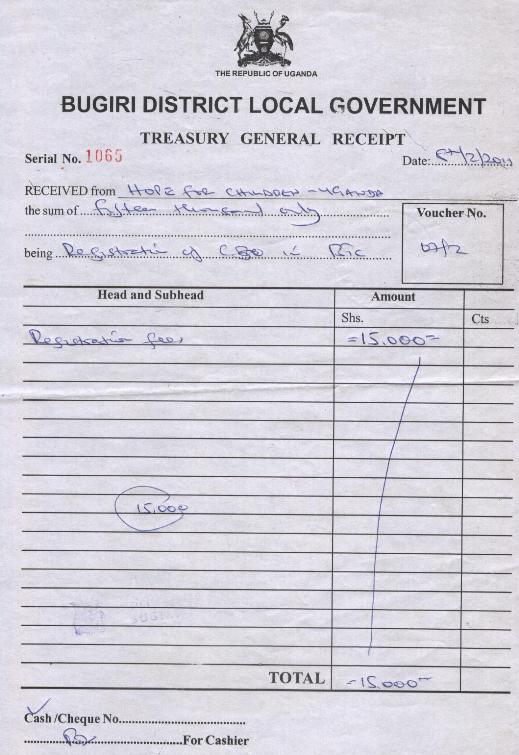 THE REPUBLIC OF UGANDA
BUGIRI DISTRICT LOCAL GOVERNMENT
TREASURY GENERAL RECEIPT
Serial No. 1065
Date:
RECEIVED from HOPE FOR CHILDREN - UGANDA
the sum of fifteen thousand only
Voucher No.
07/2
being Registration of CBO in
Head and Subhead Amount
Shs. Cts
Registration fees =15,000=
15,000
TOTAL =15,000=
Cash/Cheque No.
For Cashier